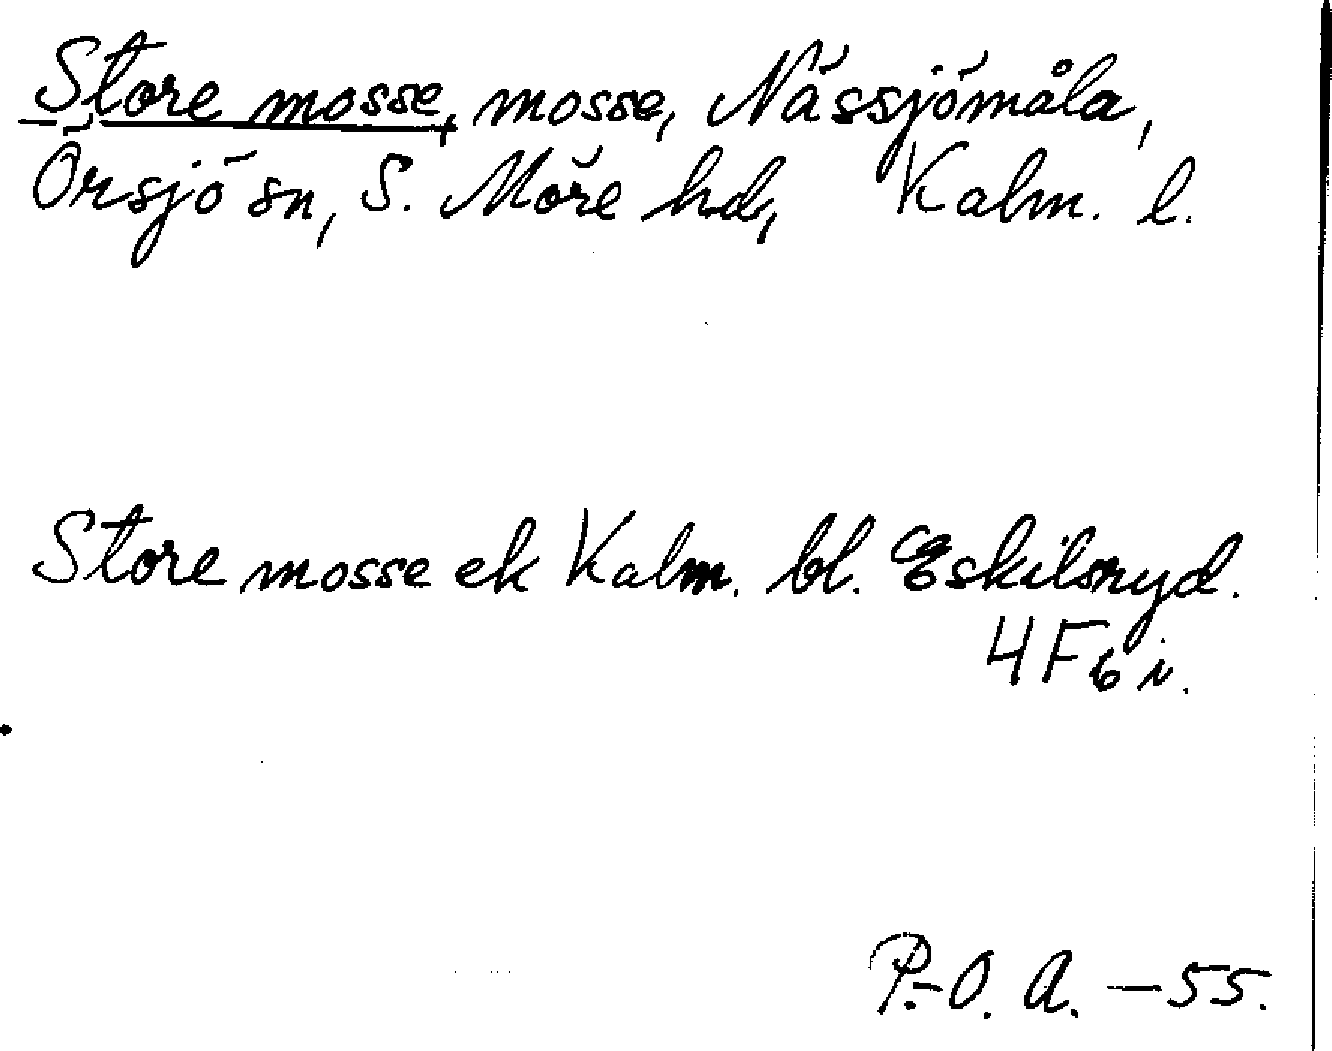 Store mosse, mosse, Nässjömåla,
Örsjö sn, S. Möre hd, Kalm. l.
Store mosse ek Kalm. bl. Eskilsryd.
4F6i.
P.-O. A. — 55.